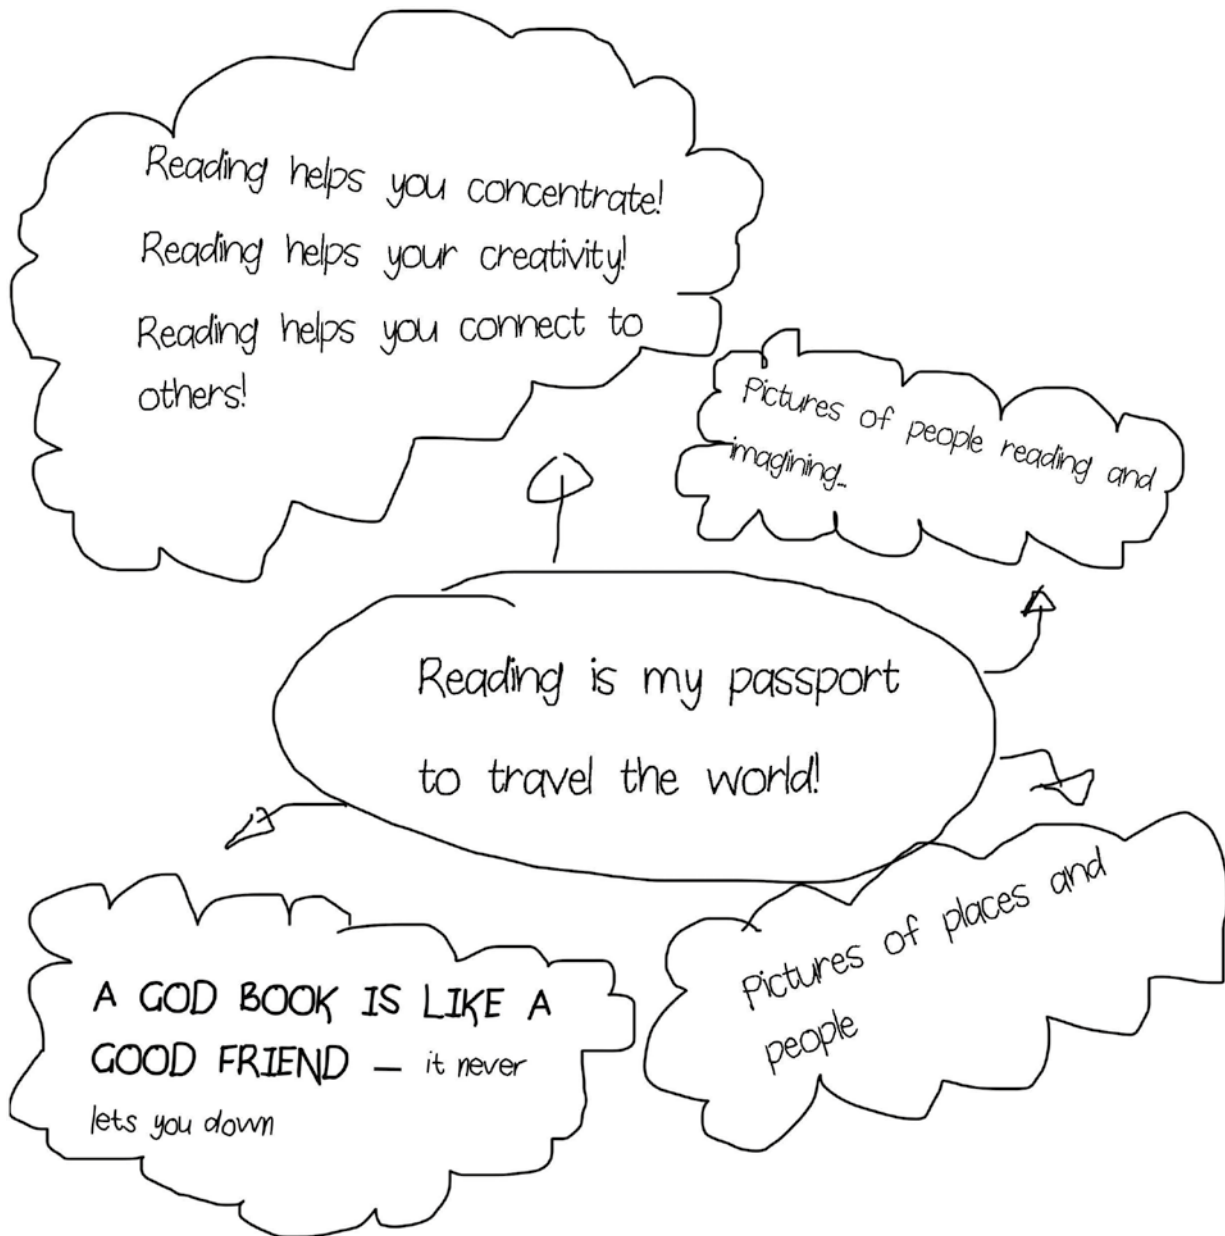 Reading helps you concentrate!
Reading helps your creativity!
Reading helps you connect to
others!
Pictures of people reading and
imagining...
Reading is my passport
to travel the world!
A GOD BOOK IS LIKE A
GOOD FRIEND – it never
lets you down
Pictures of places and
people